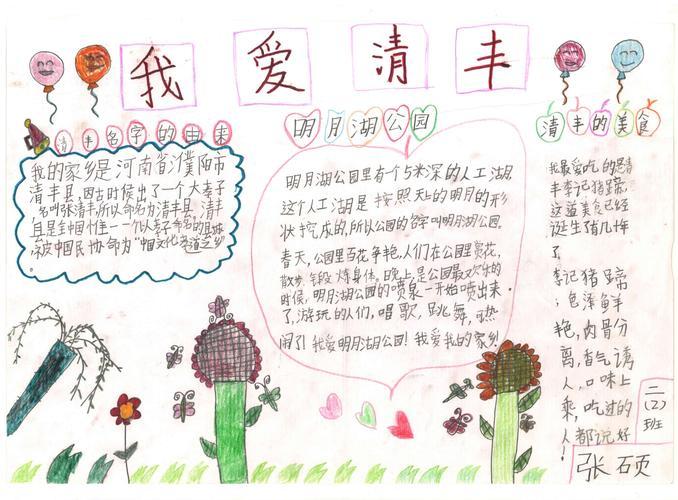 我爱清丰
清丰名字的由来
我的家乡是河南省濮阳市
清丰县,因古时侯出了一个大孝子
名叫张清丰,所以命名为清丰县,清丰
县是全中国惟一一个以孝子命名的县城
被中国民协命为“中国文化孝道之乡”
。
明月湖公园
明月湖公园里有个5米深的人工湖
这个人工湖是按照天上的明月的形
状挖成的,所以公园的名字叫明月湖公园。
春天,公园里百花争艳,人们在公园里赏花,
散步,锻炼身体。晚上,是公园最欢乐的
时侯,明月湖公园的喷泉一开始喷出来
了,游玩的人们,唱歌,跳舞,可热
闹了!我爱明月湖公园!我爱我的家乡!
清丰的美食
我最爱吃的是清
丰李记猪蹄,
这道美食已经
诞生有几十年
了
李记猪蹄
;色泽鲜
艳,肉骨分
离,香气诱
人,口味上
乘,吃过的
人都说好!
二(2)班
张硕